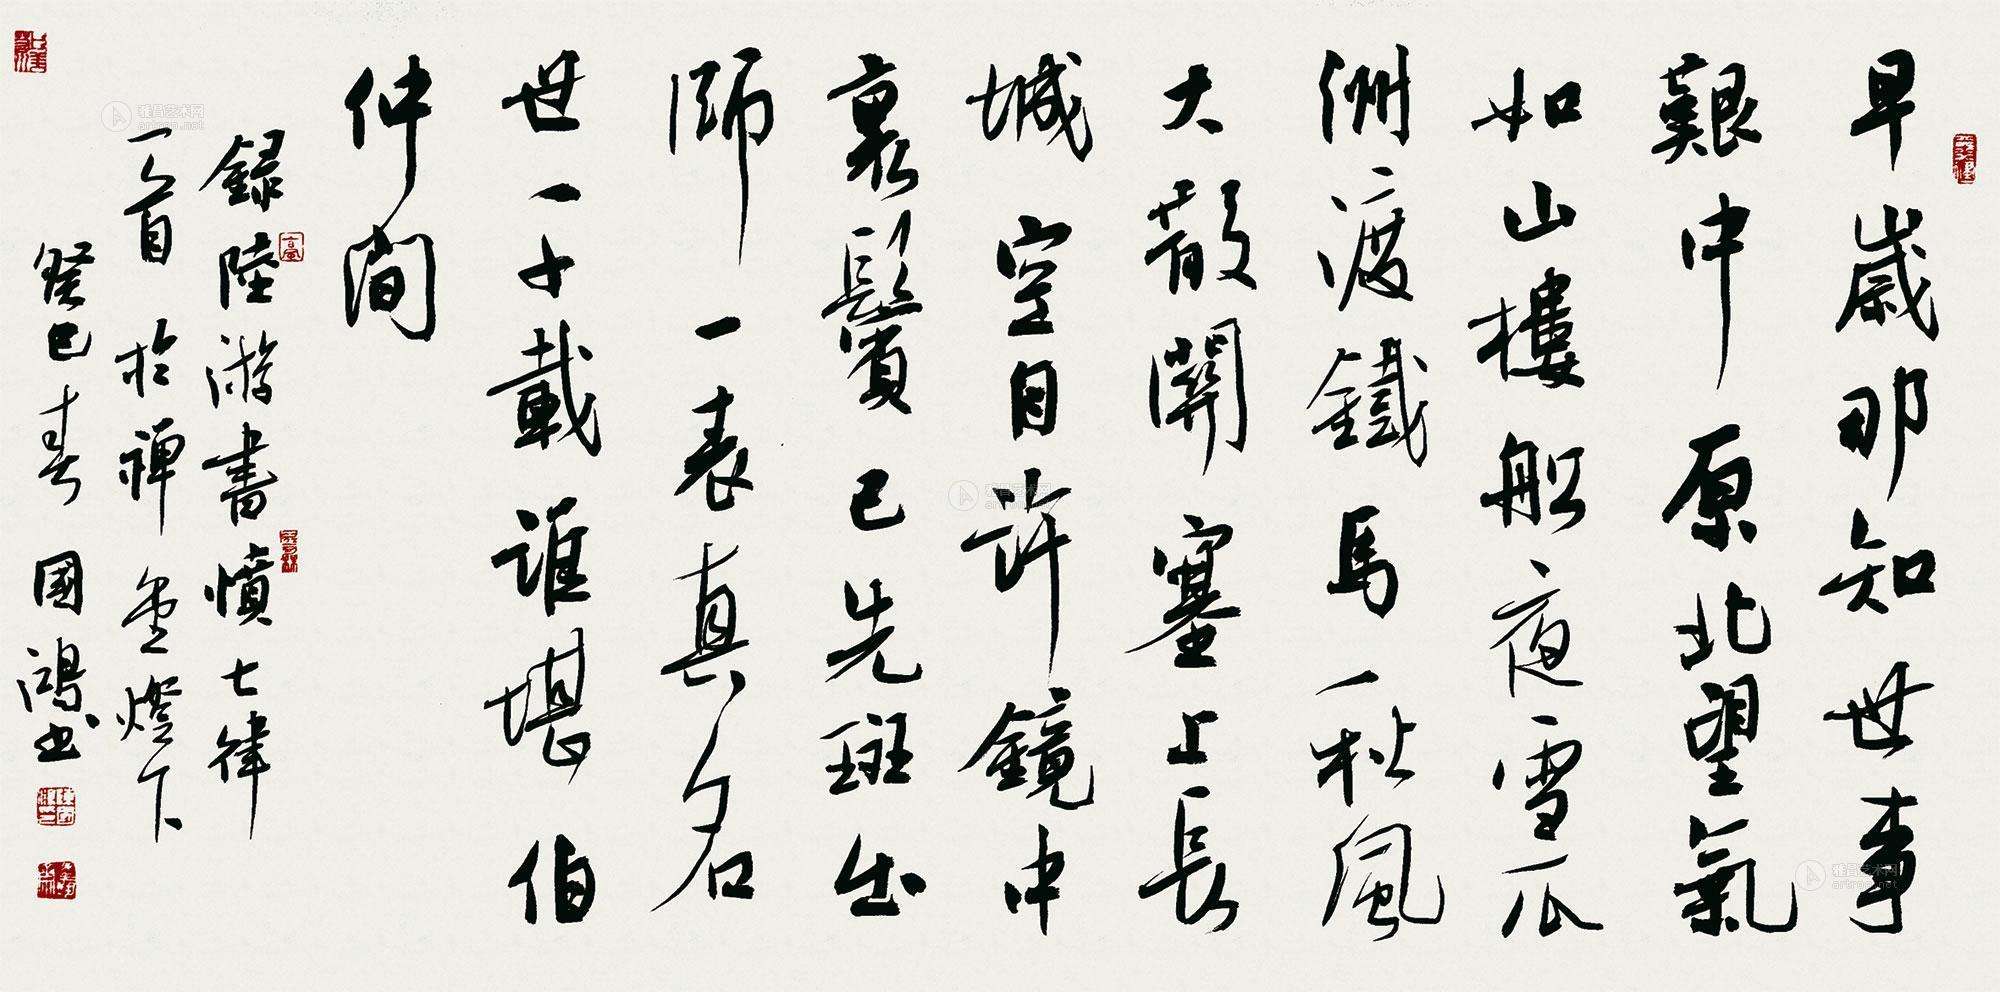 早歲那知世事
艱中原北望氣
如山樓船夜雪瓜
洲渡鐵馬一秋風
大散關塞上長
城空自許鏡中
衰鬢已先斑出
師一表真名
世一千載誰堪伯
仲間
錄陸游書憤七律
一首於禪燈下
癸巳春國鴻书
雅昌艺术网
artron.net